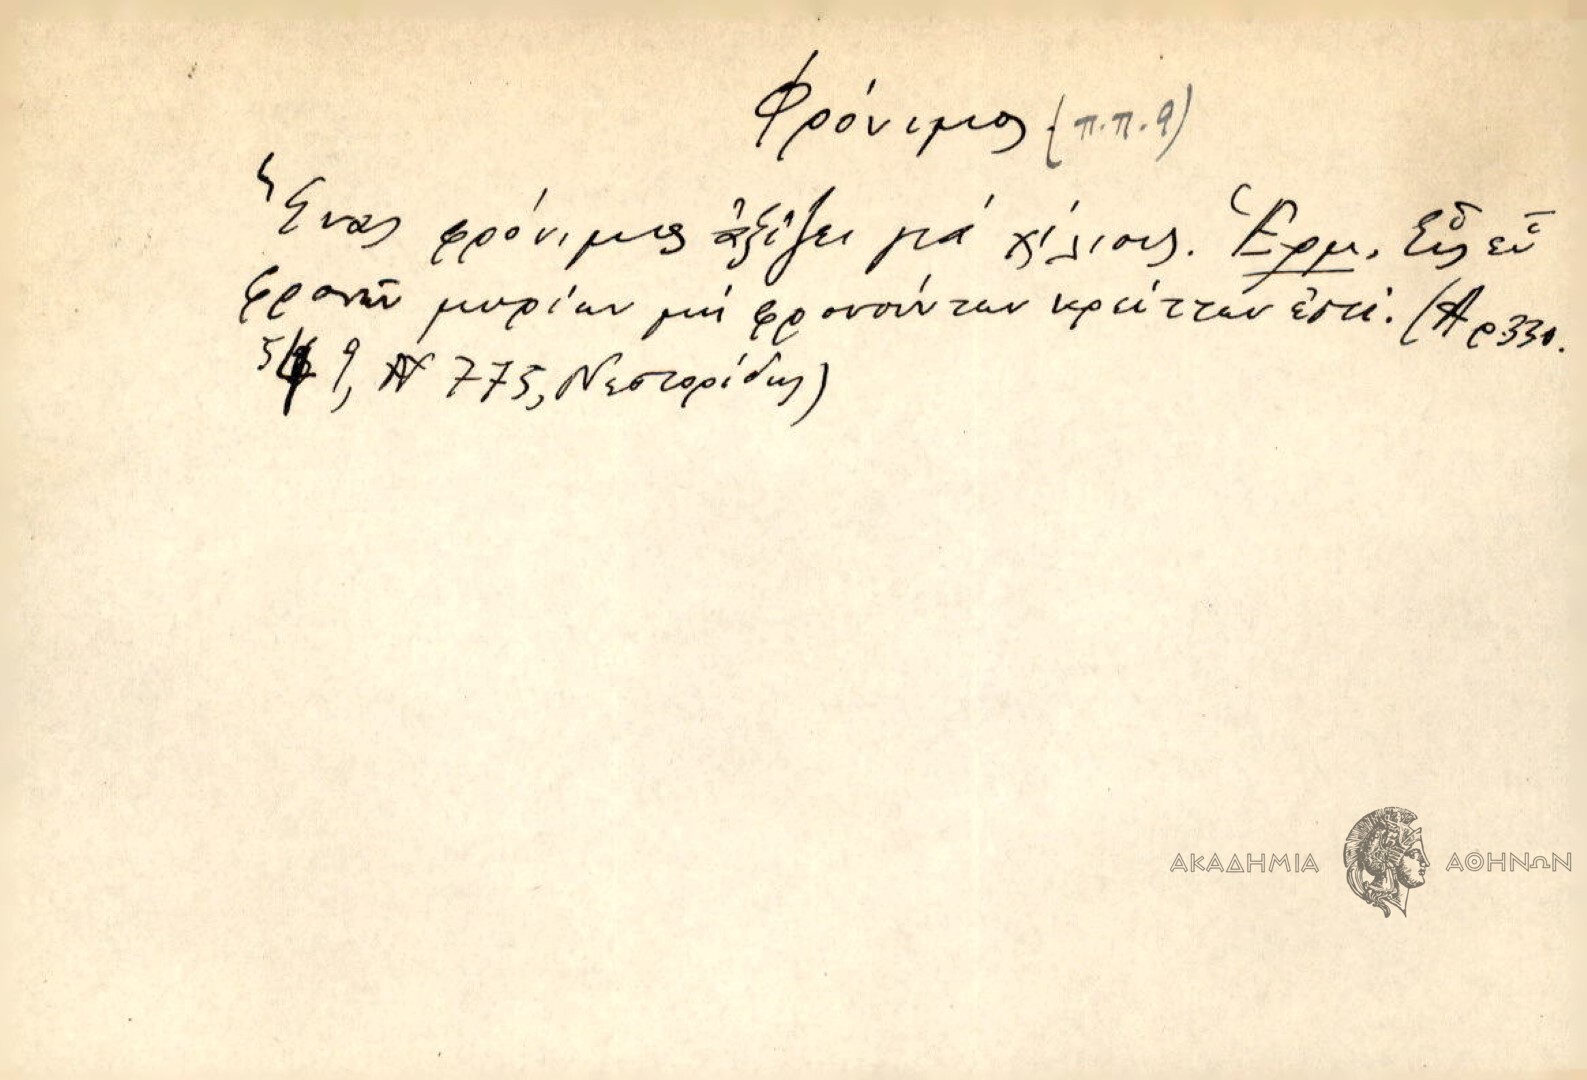 Φρόνιμος (π.π.9)
Ἕνας φρόνιμος ἀξίζει γιά χίλιους. Ἑρμ. Εἷς εὖ
φρονῶν μυρίων μή φρονούντων κρείττων ἐστί. (Αρ 330.
9, 775, Νεστορίδης)
ΑΚΑΔΗΜΙΑ ΑΘΗΝΩΝ